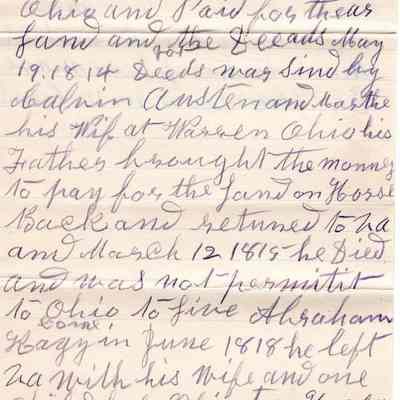 Ohio and Paid for thear
Land and the Deeads May
19.1814 Deeds was Sind by
Calvin Austen and Marthe
his Wife at Warren Ohio his
Father brought the monney
to pay for the Land on Horse
Back and retuned to va
and March 12 1815 he Died
and was not permitit
to Ohio to live Abraham
come
Kagy in June 1818 he left
va with his wife and one